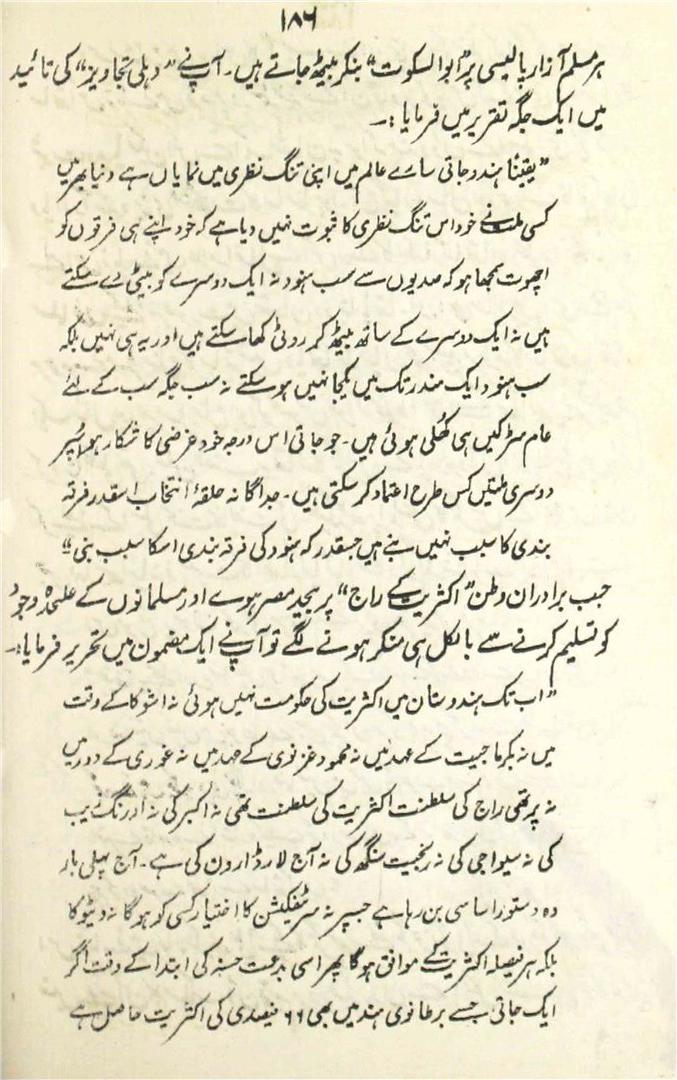 ۱۸۶
ہر مسلم آزار پالیسی پر "ابوالسکوت" بنکر بیٹھ جاتے ہیں۔ آپ نے "دہلی تجاویز" کی تائید
میں ایک جگہ تقریر میں فرمایا:۔
"یقیناً ہندو جاتی سارے عالم میں اپنی تنگ نظری میں نمایاں ہے دنیا بھر میں
کسی ملت نے خود اس تنگ نظری کا ثبوت نہیں دیا ہے کہ خود اپنے ہی فرقوں کو
اچھوت سمجھا ہو کہ صدیوں سے سب ہنود نہ ایک دوسرے کو بیٹی دے سکتے
ہیں نہ ایک دوسرے کے ساتھ بیٹھ کر روٹی کھا سکتے ہیں اور یہ ہی نہیں بلکہ
سب ہنود ایک مندر تک میں یکجا نہیں ہو سکتے نہ سب جگہ سب کے لئے
عام سڑکیں ہی کھلی ہوئی ہیں۔ جو جاتی اس درجہ خود غرضی کا شکار ہو اسپر
دوسری ملتیں کس طرح اعتماد کر سکتی ہیں۔ جداگانہ حلقۂ انتخاب اسقدر فرقہ
بندی کا سبب نہیں بنے ہیں جسقدر کہ ہنود کی فرقہ بندی اسکا سبب بنی"
جب برادران وطن "اکثریت کے راج" پر بیحد مصر ہوے اور مسلمانوں کے علحدہ وجود
کو تسلیم کرنے سے بالکل ہی منکر ہونے لگے تو آپ نے ایک مضمون میں تحریر فرمایا:۔
"اب تک ہندوستان میں اکثریت کی حکومت نہیں ہوئی نہ اشوکا کے وقت
میں نہ بکرماجیت کے عہد میں نہ محمود غزنوی کے عہد میں نہ غوری کے دور میں
نہ پرتھی راج کی سلطنت اکثریت کی سلطنت تھی نہ اکبر کی نہ اورنگ زیب
کی نہ سیواجی کی نہ رنجیت سنگھ کی نہ آج لارڈ ارون کی ہے۔ آج پہلی بار
وہ دستور اساسی بن رہا ہے جسپر نہ سرٹفکیشن کا اختیار کسی کو ہوگا نہ ویٹو کا
بلکہ ہر فیصلہ اکثریت کے موافق ہوگا پھر اسی بدعت حسنہ کی ابتدا کے وقت اگر
ایک جاتی جسے برطانوی ہند میں بھی ۶۶ فیصدی کی اکثریت حاصل ہے